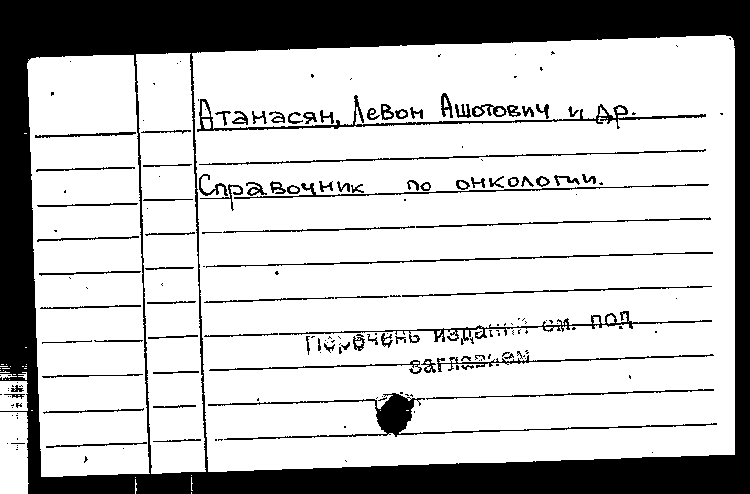 Атанасян, Левон Ашотович и др.
Справочник по онкологии.
Перечень изданий см. под
заглавием